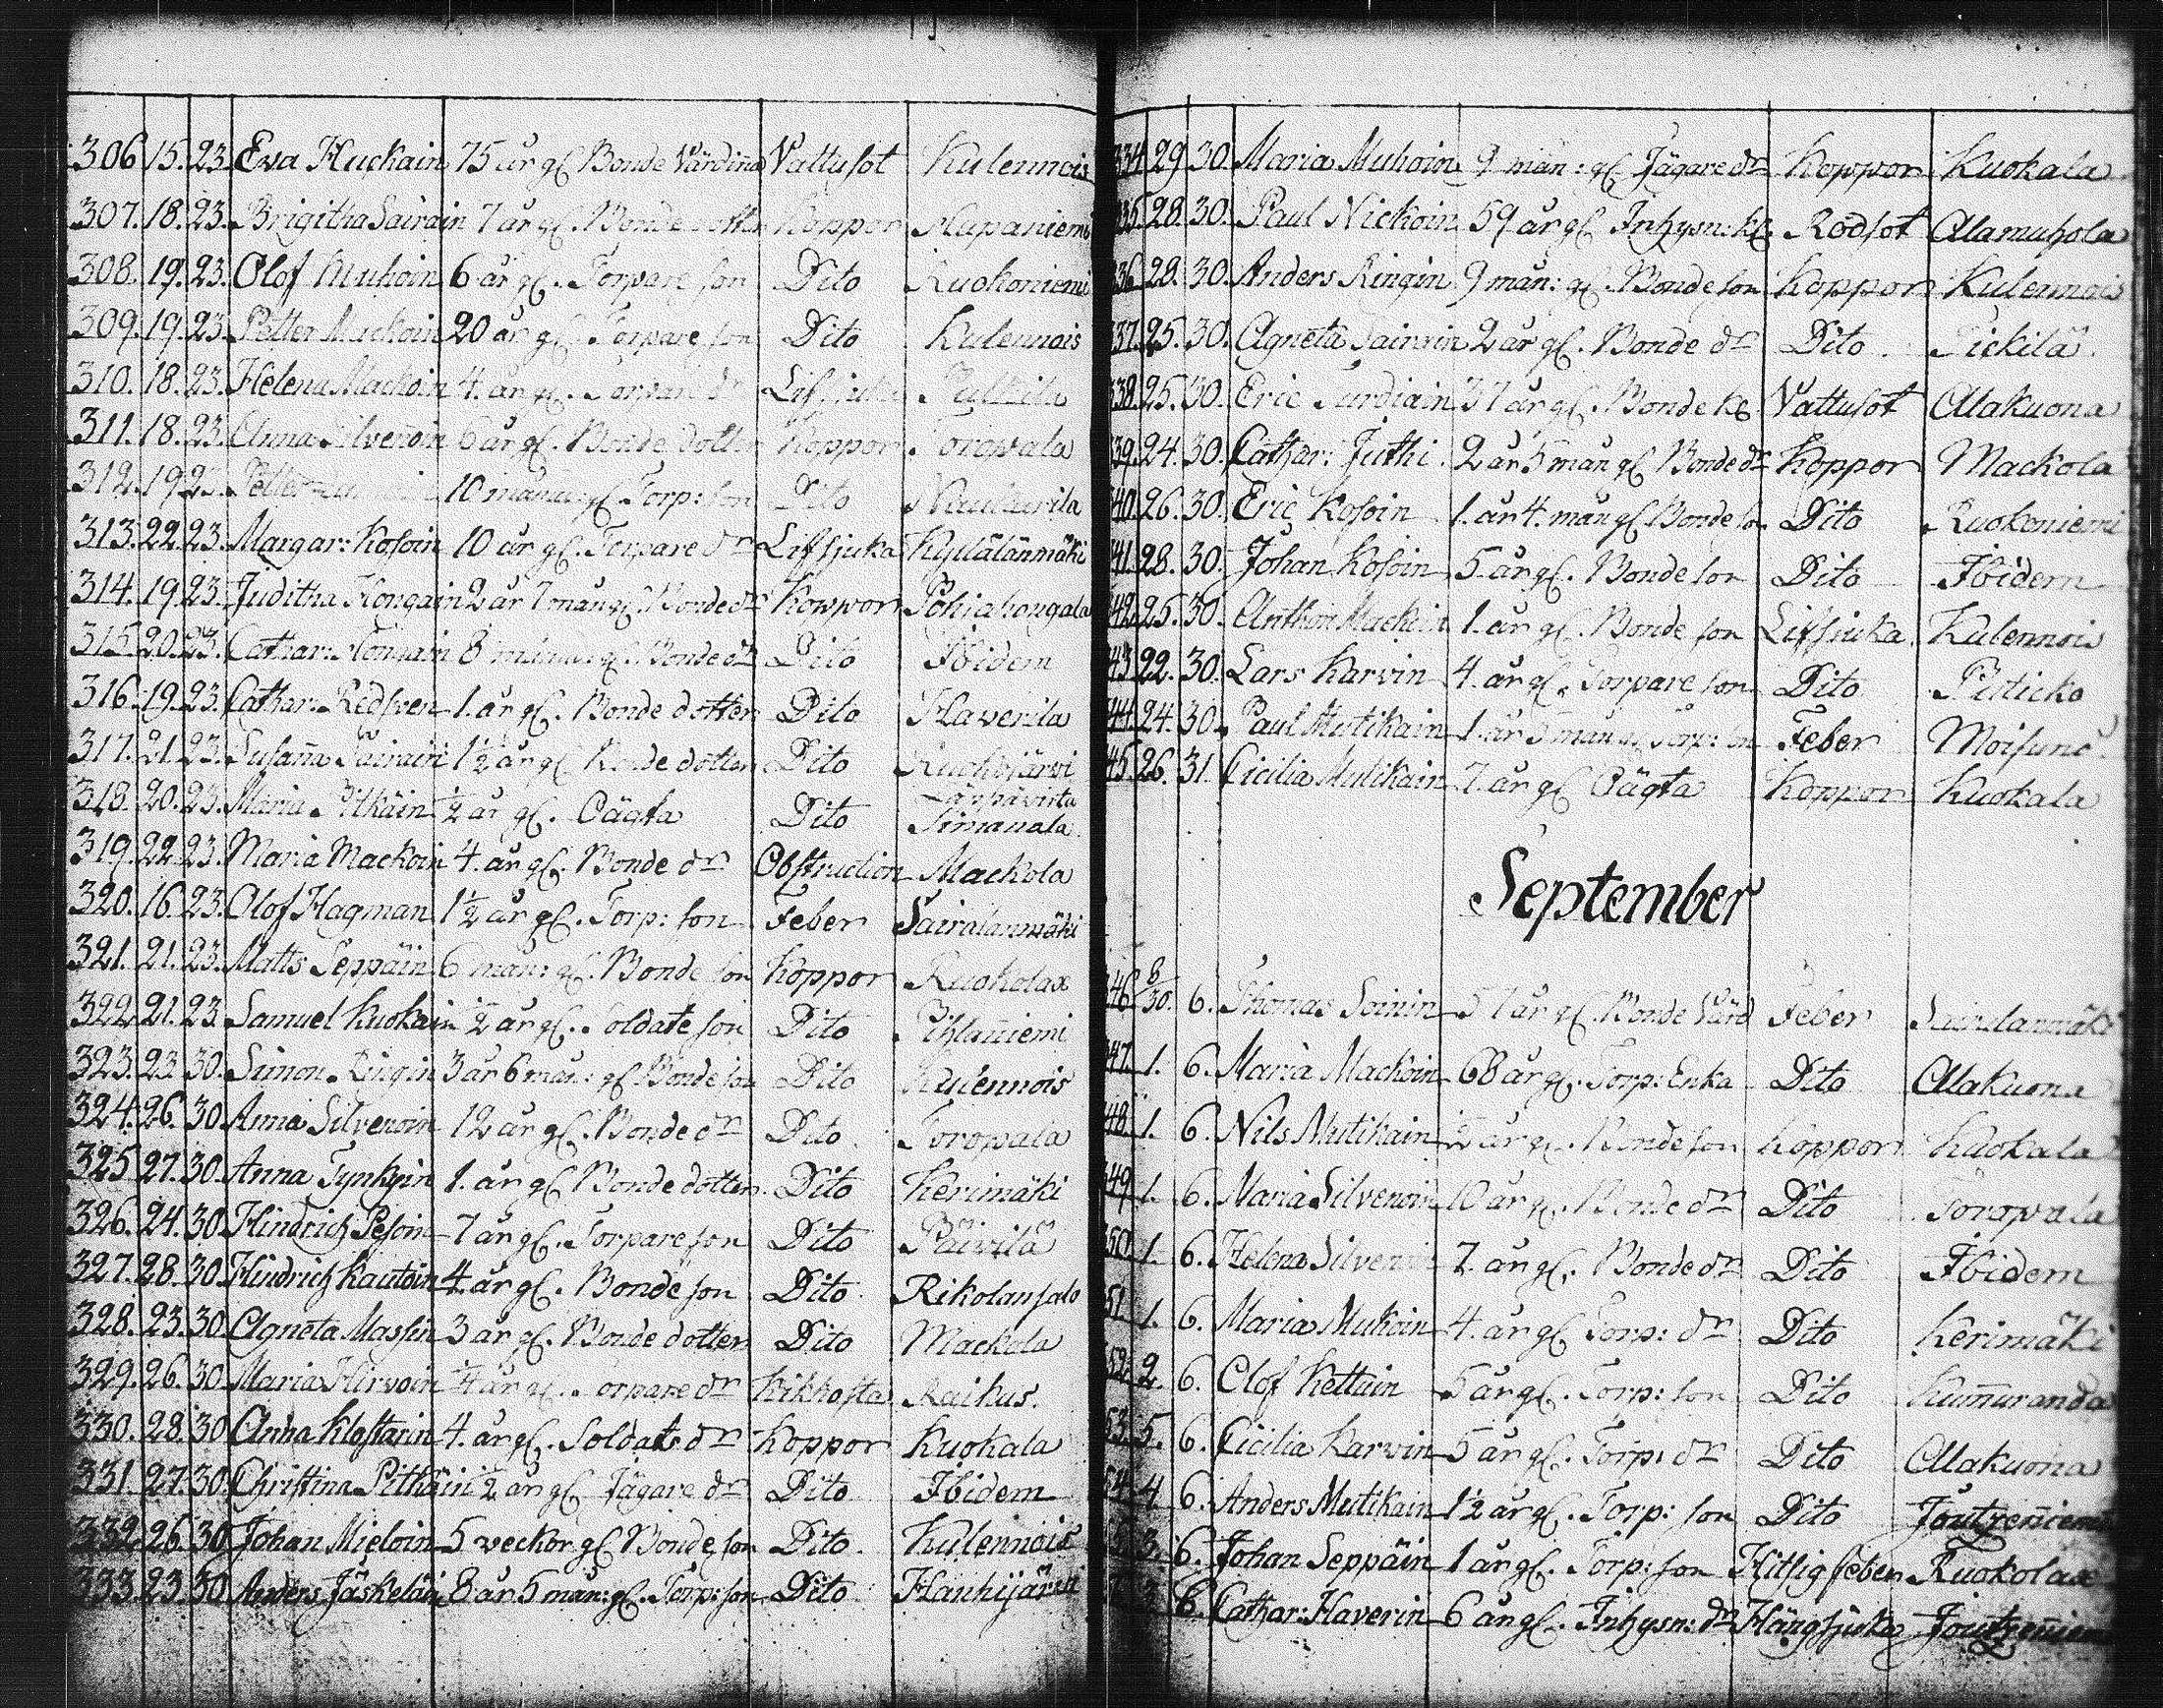 306. 15. 23. Eva Huckain 75 år gl. Bonde Värdiña Vattusot Kulennois
307. 18. 23. Brigitha Sairain 7 år gl. Bonde dotter Koppor Hapaniemi
308. 19. 23. Olof Muhoin 6 år gl. Torpare son Dito Ruokoniemi
309. 19. 23. Petter Mackoin 20 år gl. Torpare son Dito Kulennois
310. 18. 23. Helena Mackoin 4. år gl. Torpare dr Lifsjuka
311. 18. 23. Anna Silvenoin 6 år gl. Bonde dotter Koppor Toropala
312. 19. 23. Petter 10 månar gl. Torp: son Dito
313. 22. 23. Margar: Kosoin 10 år gl. Torpare dr Lifsjuka Kyttälänmäki
314. 19. 23. Juditha Kongain 2 år 7 mån gl. Bonde dr Koppor Pohiakongala
315. 20. 23. Cathar: Kongain 8 månar gl. Bonde dr Dito Ibidem
316. 19. 23. Cathar: Redsven 1. år gl. Bonde dotter Dito Haverila
317. 21. 23. Susaña Sairain 1½ år gl. Bonde dotter Dito Ruokojärvi
318. 20. 23. Maria Pitkäin ½ år gl. Oägta Dito Simanala
319. 22. 23. Maria Mackoin 4. år gl. Bonde dr Obstruction Mackola
320. 16. 23. Olof Hagman 1½ år gl. Torp: son Feber Sairalanmäki
321. 21. 23. Matts Seppäin 6 mån: gl. Bonde son Koppor Ruokolax
322. 21. 23. Samuel Kuokain ½ år gl. Soldate son Dito Pihlañiemi
323. 23. 30. Simon Ringin 3 år 6 mån: gl Bonde son Dito Kulennois
324. 26. 30. Anna Silvenoin 12 år gl. Bonde dr Dito Toropala
325. 27. 30. Anna Tynkyin 1. år gl. Bonde dotter Dito Kerimäki
326. 24. 30. Hindrich Pesoin 7 år gl. Torpare son Dito Päivilä
327. 28. 30. Hindrich Kautoin 4. år gl. Bonde son Dito Rikolansalo
328. 23. 30. Agneta Massin 3 år gl. Bonde dotter Dito Mackola
329. 26. 30. Maria Hirvoin ¼ år gl. Torpare dr Kikhosta Raikus.
330. 28. 30. Anna Klostarin 4. år gl. Soldats dr Koppor Kuokala
331. 27. 30. Christina Pitkäin ½ år gl. Jägare dr Dito Ibidem
332. 26. 30. Johan Mieloin 5 veckor gl. Bonde son Dito Kulennois
333. 23. 30. Anders Jäskeläin 8 år 5 mån: gl. Torp: son Dito Hanhijärvi
334. 29. 30. Maria Muhoin 9 mån: gl. Jägare dr Koppor Kuokala
335. 28. 30. Paul Nickoin 59 år gl. Inhysn: kl. Rödsot Alamuhola
336. 28. 30. Anders Ringin 9 mån: gl. Bonde son Koppor Kulennois
337. 25. 30. Agneta Sairain 2 år gl. Bonde dr Dito Tickilä
338. 25. 30. Eric Turdiain 37 år gl. Bonde ke Vattusot Alakuona
339. 24. 30. Cathar: Juthi 2 år 5 mån gl Bonde dr Koppor Mackola
340. 26. 30. Eric Kosoin 1. år 4. mån gl Bonde so Dito Ruokoniemi
341. 28. 30. Johan Kosoin 5 år gl. Bonde son Dito Ibidem
342. 25. 30. Anthon Mackoin 1. år gl. Bonde son Lifsjuka Kulennois
343. 22. 30. Lars Karvin 4. år gl. Torpare son Dito
344. 24. 30. Paul Mutikain 1. år 3 mån gl Torp: son Feber
345. 26. 31. Cicilia Mutikain 7. år gl Oägta Koppor Kuokala
September
346. 8/30. 6. Thomas Soinin 57 år gl. Bonde Värd Feber Sairalanmäki
347. 1. 6. Maria Mackoin 68 år gl. Torp: Enka Dito Alakuona
348. 1. 6. Nils Mutikain ½ år gl. Bonde son Koppor Kuokala
349. 1. 6. Maria Silvenoin 10 år gl. Bonde dr Dito Toropala
350. 1. 6. Helena Silvenoin 7. år gl. Bonde dr Dito Ibidem
351. 1. 6. Maria Muhoin 4. år gl. Torp: dr Dito Kerimäki
352. 2. 6. Olof Kettuin 5 år gl. Torp: son Dito Kum̄uranda
353. 5. 6. Cicilia Karvin 5 år gl. Torp: dr Dito Alakuona
354. 4. 6. Anders Mutikain 1½ år gl. Torp: son Dito Joutzeñiemi
3. 6. Johan Seppäin 1 år gl. Torp: son Hitsig feber Ruokolax
3. 6. Cathar: Haverin 6 år gl. Inhysn: dr Hängsjuka Joutzeñiemi